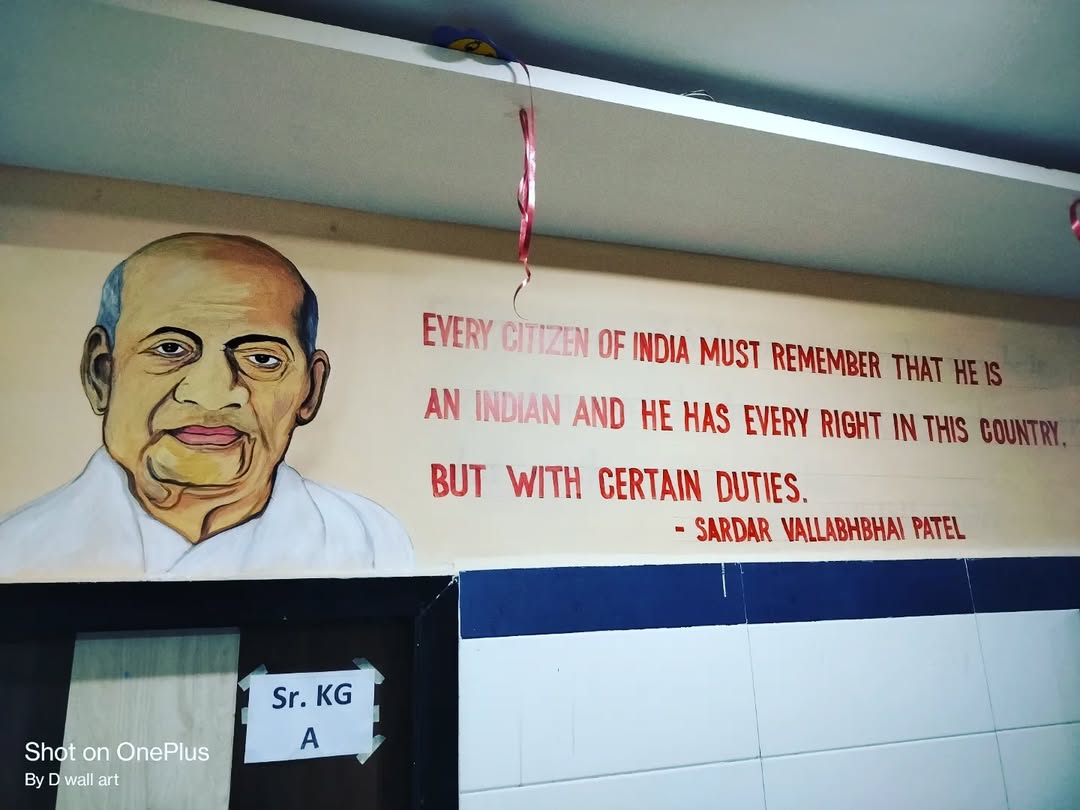 EVERY CITIZEN OF INDIA MUST REMEMBER THAT HE IS
AN INDIAN AND HE HAS EVERY RIGHT IN THIS COUNTRY,
BUT WITH CERTAIN DUTIES.
- SARDAR VALLABHBHAI PATEL
Sr. KG
A
Shot on OnePlus
By D wall art